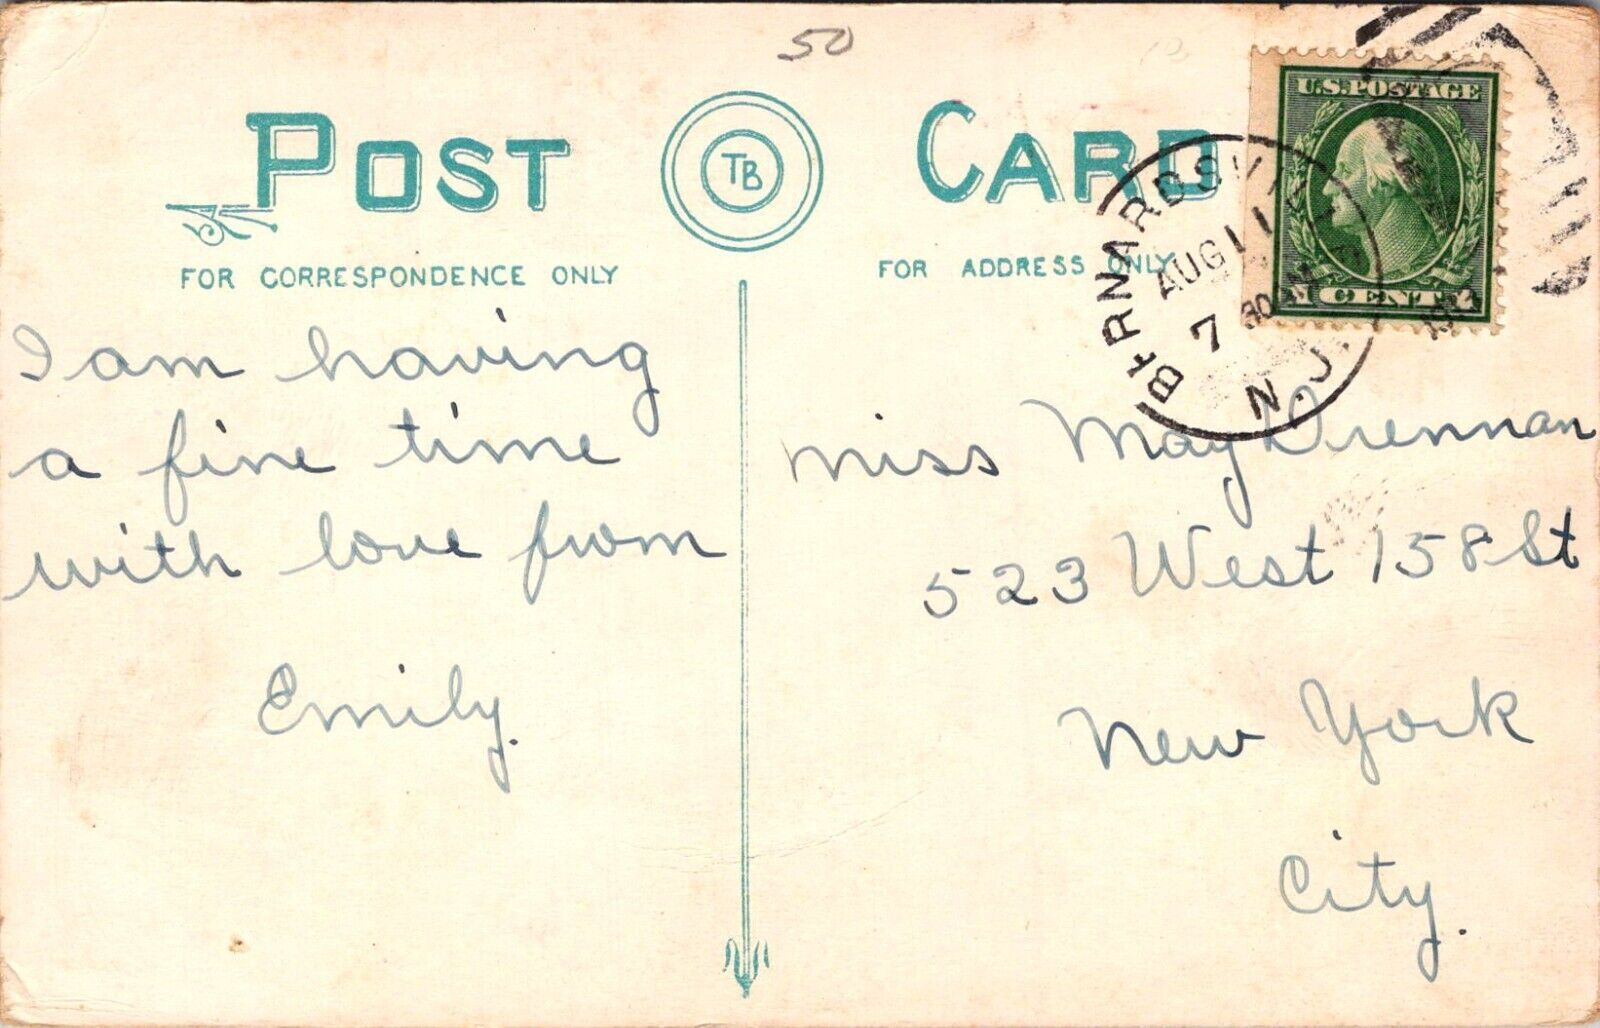 50
POST TB CARD
FOR CORRESPONDENCE ONLY
FOR ADDRESS ONLY
U.S. POSTAGE
1 CENT 1
BERNARDSVILLE
AUG 11
7 30
N.J.
I am having
a fine time
with love from
Emily.
Miss May Drennan
523 West 158 St
New York
City.